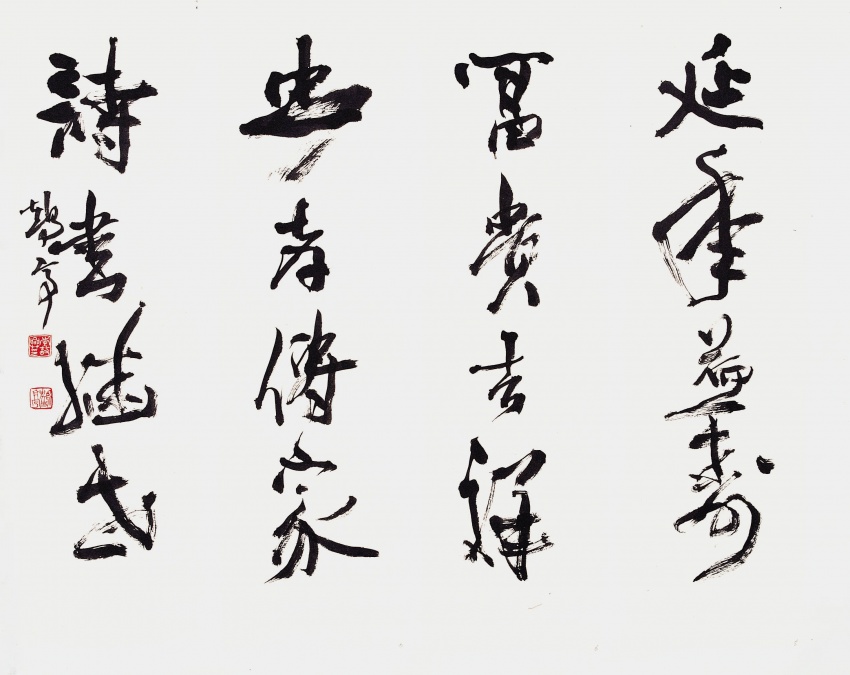 延年益壽
富貴吉祥
忠孝傳家
詩書繼世